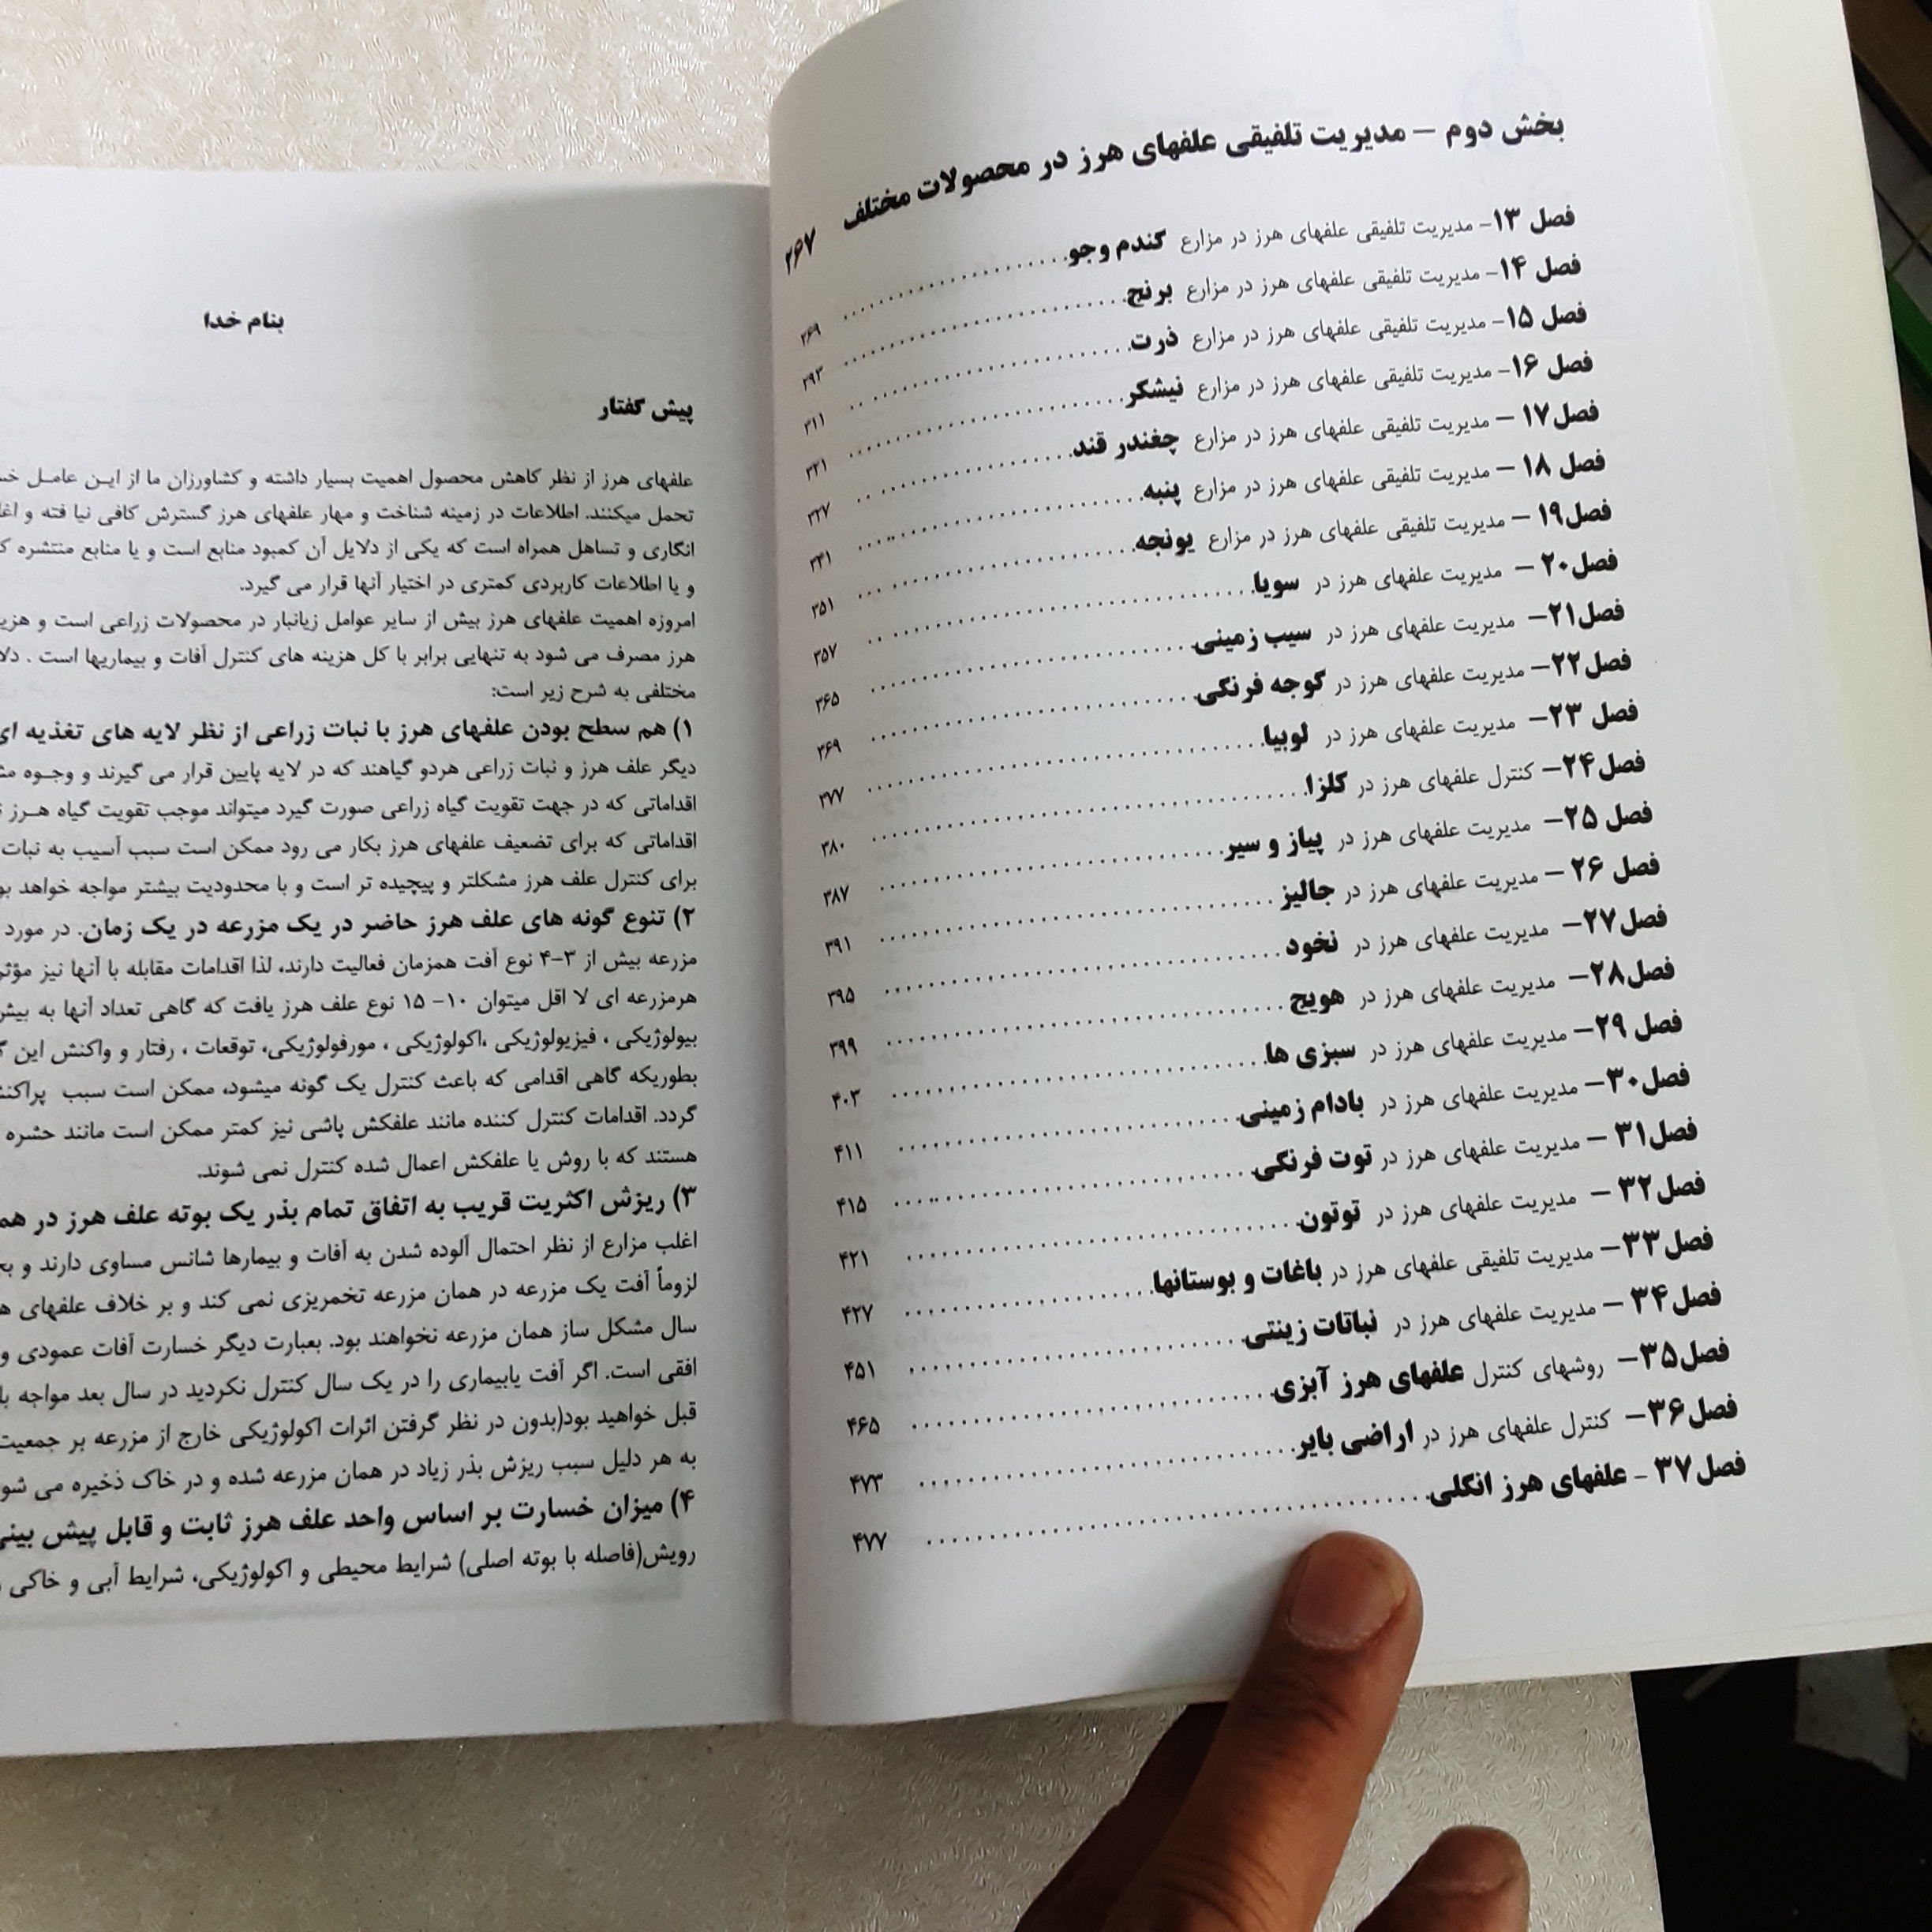 بخش دوم – مدیریت تلفیقی علفهای هرز در محصولات مختلف ۲۶۷
فصل ۱۳- مدیریت تلفیقی علفهای هرز در مزارع گندم وجو ۲۶۹
فصل ۱۴- مدیریت تلفیقی علفهای هرز در مزارع برنج ۲۹۳
فصل ۱۵- مدیریت تلفیقی علفهای هرز در مزارع ذرت ۳۱۱
فصل ۱۶- مدیریت تلفیقی علفهای هرز در مزارع نیشکر ۳۲۱
فصل۱۷ – مدیریت تلفیقی علفهای هرز در مزارع چغندر قند ۳۲۷
فصل ۱۸ – مدیریت تلفیقی علفهای هرز در مزارع پنبه ۳۴۱
فصل۱۹ – مدیریت تلفیقی علفهای هرز در مزارع یونجه ۳۵۱
فصل۲۰ – مدیریت علفهای هرز در سویا ۳۵۷
فصل۲۱– مدیریت علفهای هرز در سیب زمینی ۳۶۵
فصل۲۲– مدیریت علفهای هرز در گوجه فرنگی ۳۶۹
فصل ۲۳– مدیریت علفهای هرز در لوبیا ۳۷۷
فصل۲۴– کنترل علفهای هرز در کلزا ۳۸۰
فصل ۲۵– مدیریت علفهای هرز در پیاز و سیر ۳۸۷
فصل ۲۶ – مدیریت علفهای هرز در جالیز ۳۹۱
فصل۲۷– مدیریت علفهای هرز در نخود ۳۹۵
فصل۲۸– مدیریت علفهای هرز در هویج ۳۹۹
فصل ۲۹– مدیریت علفهای هرز در سبزی ها ۴۰۳
فصل۳۰– مدیریت علفهای هرز در بادام زمینی ۴۱۱
فصل۳۱ – مدیریت علفهای هرز در توت فرنگی ۴۱۵
فصل۳۲ – مدیریت علفهای هرز در توتون ۴۲۱
فصل۳۳– مدیریت تلفیقی علفهای هرز در باغات و بوستانها ۴۲۷
فصل۳۴ – مدیریت علفهای هرز در نباتات زینتی ۴۵۱
فصل۳۵– روشهای کنترل علفهای هرز آبزی ۴۶۵
فصل۳۶– کنترل علفهای هرز در اراضی بایر ۴۷۳
فصل۳۷ - علفهای هرز انگلی ۴۷۷
بنام خدا
پیش گفتار
علفهای هرز از نظر کاهش محصول اهمیت بسیار داشته و کشاورزان ما از ایـن عامـل
تحمل میکنند. اطلاعات در زمینه شناخت و مهار علفهای هرز گسترش کافی نیا فته و
انگاری و تساهل همراه است که یکی از دلایل آن کمبود منابع است و یا منابع منتشره
و یا اطلاعات کاربردی کمتری در اختیار آنها قرار می گیرد.
امروزه اهمیت علفهای هرز بیش از سایر عوامل زیانبار در محصولات زراعی است و
هرز مصرف می شود به تنهایی برابر با کل هزینه های کنترل آفات و بیماریها است .
مختلفی به شرح زیر است:
۱) هم سطح بودن علفهای هرز با نبات زراعی از نظر لایه های تغذیه ای
دیگر علف هرز و نبات زراعی هردو گیاهند که در لایه پایین قرار می گیرند و وجـوه
اقداماتی که در جهت تقویت گیاه زراعی صورت گیرد میتواند موجب تقویت گیاه هـرز
اقداماتی که برای تضعیف علفهای هرز بکار می رود ممکن است سبب آسیب به نبات
برای کنترل علف هرز مشکلتر و پیچیده تر است و با محدودیت بیشتر مواجه خواهد
۲) تنوع گونه های علف هرز حاضر در یک مزرعه در یک زمان. در مورد
مزرعه بیش از ۳-۴ نوع آفت همزمان فعالیت دارند، لذا اقدامات مقابله با آنها نیز
هرمزرعه ای لا اقل میتوان ۱۰- ۱۵ نوع علف هرز یافت که گاهی تعداد آنها به
بیولوژیکی ، فیزیولوژیکی ،اکولوژیکی ، مورفولوژیکی، توقعات ، رفتار و واکنش این
بطوریکه گاهی اقدامی که باعث کنترل یک گونه میشود، ممکن است سبب
گردد. اقدامات کنترل کننده مانند علفکش پاشی نیز کمتر ممکن است مانند حشره
هستند که با روش یا علفکش اعمال شده کنترل نمی شوند.
۳) ریزش اکثریت قریب به اتفاق تمام بذر یک بوته علف هرز در
اغلب مزارع از نظر احتمال آلوده شدن به آفات و بیمارها شانس مساوی دارند و
لزوماً آفت یک مزرعه در همان مزرعه تخمریزی نمی کند و بر خلاف علفهای
سال مشکل ساز همان مزرعه نخواهند بود. بعبارت دیگر خسارت آفات عمودی و
افقی است. اگر آفت یابیماری را در یک سال کنترل نکردید در سال بعد مواجه
قبل خواهید بود(بدون در نظر گرفتن اثرات اکولوژیکی خارج از مزرعه بر جمعیت
به هر دلیل سبب ریزش بذر زیاد در همان مزرعه شده و در خاک ذخیره می
۴) میزان خسارت بر اساس واحد علف هرز ثابت و قابل پیش
رویش(فاصله با بوته اصلی) شرایط محیطی و اکولوژیکی، شرایط آبی و خاکی